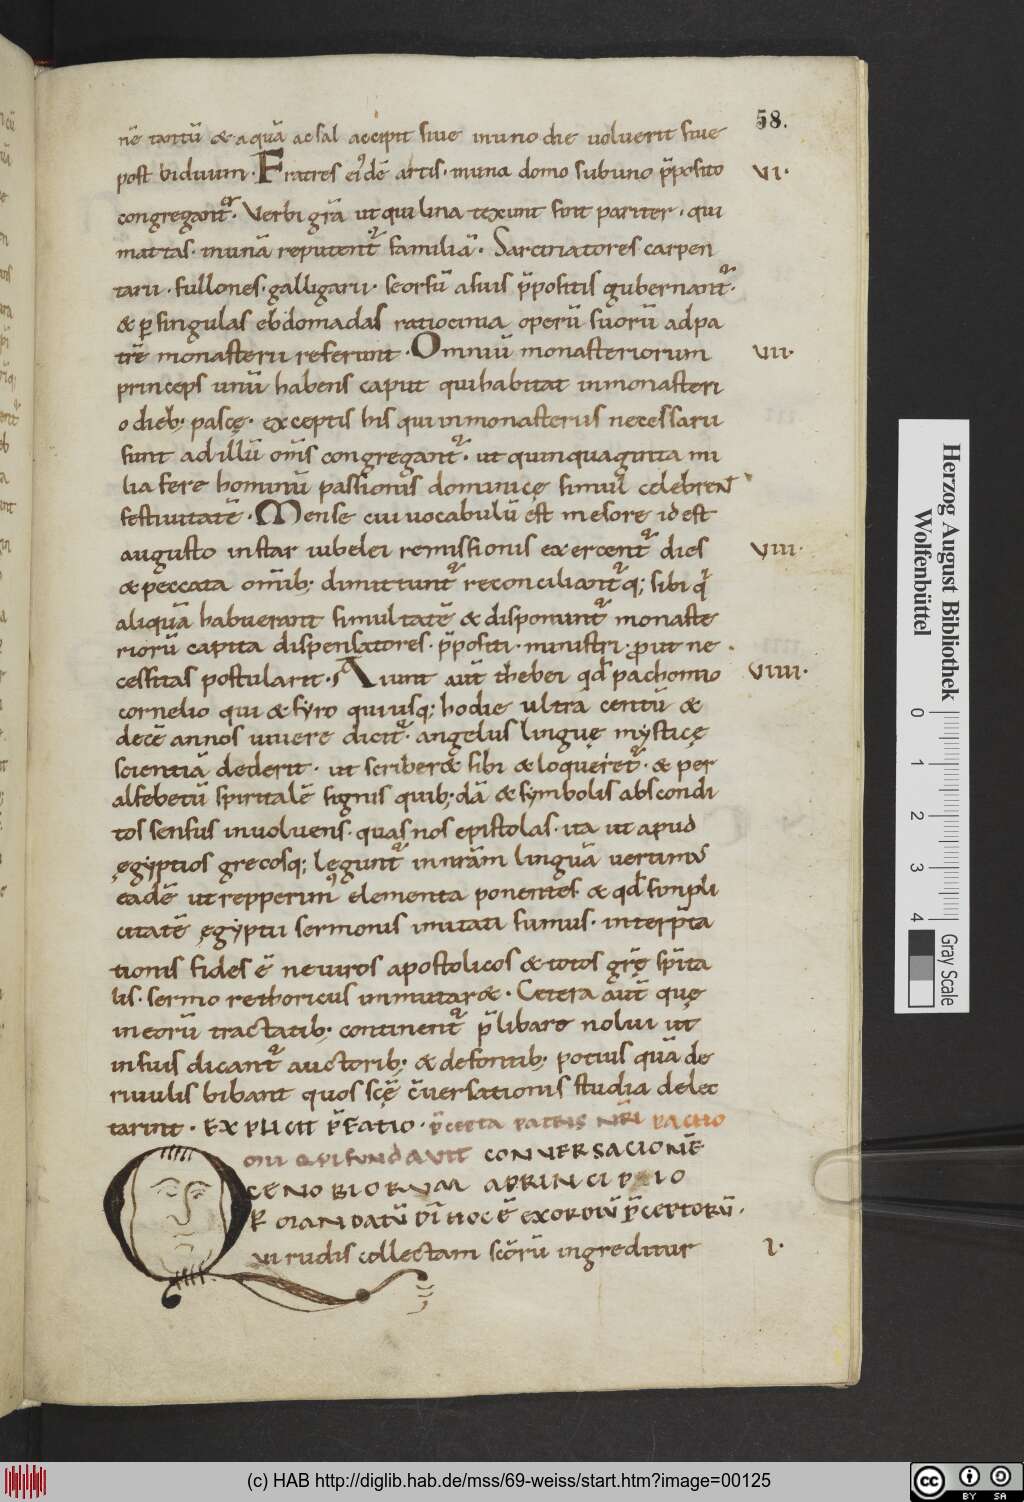 58.
nē tantū & aquā ac sal accipit siue inuno die uoluerit siue
post biduum. Fratres eiusdē artis. inuna domo subuno p̄posito VI.
congregant᷑. Verbi grā ut qui lina texunt sint pariter. qui
mattas. inunā reputent᷑ familiā. Sarcinatores carpen
tarii. fullones. galligarii. seorsū asuis p̄positis gubernant᷑.
& ꝑ singulas ebdomadas ratiocinia operū suorū adpa
trē monasterii referunt. Omniū monasteriorum VII.
princeps unū habens caput qui habitat inmonasteri
o dieb; pascę. exceptis his qui inmonasteriis necessarii
sunt ad illū om̄s congregant᷑. ut quinquaginta mi
lia fere hominū passionis dominicę simul celebrent
festiuitatē. Mense cui uocabulū est mesore id est
augusto instar iubelei remissionis exercent᷑ dies VIII.
& peccata omīb; dimittunt᷑ reconciliant᷑q; sibi q̄
aliquā habuerant simultatē & disponunt᷑ monaste
riorū capita dispensatores. p̄positi. ministri. prout ne
cessitas postularit. Aiunt aut̄ thebei qd̄ pachomio VIIII.
cornelio qui & syro qui usq; hodie ultra centū &
decē annos uiuere dicit᷑. angelus linguę mysticę
scientiā dederit. ut scriber& sibi & loqueret᷑. & per
alfebetū spiritalē signis quib;dā & symbolis abscondi
tos sensus inuoluens. quas nos epistolas. ita ut apud
ęgyptios grecosq; legunt᷑ innr̄am linguā uertimus
eadē ut repperimꝰ elementa ponentes & qd̄ simpli
citatē ęgyptii sermonis imitati sumus. interp̄ta
tionis fides ē ne uiros apostolicos & totos grę sp̄ita
lis. sermo rethoricus inmutar&. Cetera aut̄ quę
ineorū tractatib; continent᷑ p̄libare nolui ut
insuis dicant᷑ auctorib; & defontib; potius quā de
riuulis bibant quos scę c̄uersationis studia delec
tarint. EXPLICIT P̄FATIO. p̄cepta patris nr̄i pacho
mii qui fundauit CONVERSACIONĒ
CENOBIORVM APRINCIPIO
P̄ MANDATŪ DĪ HOC Ē EXORDIŪ P̄CEPTORŪ.
Qui rudis collectam sc̄orū ingreditur I.
Herzog August Bibliothek
Wolfenbüttel
0 1 2 3 4
Gray Scale
(c) HAB http://diglib.hab.de/mss/69-weiss/start.htm?image=00125
cc BY SA